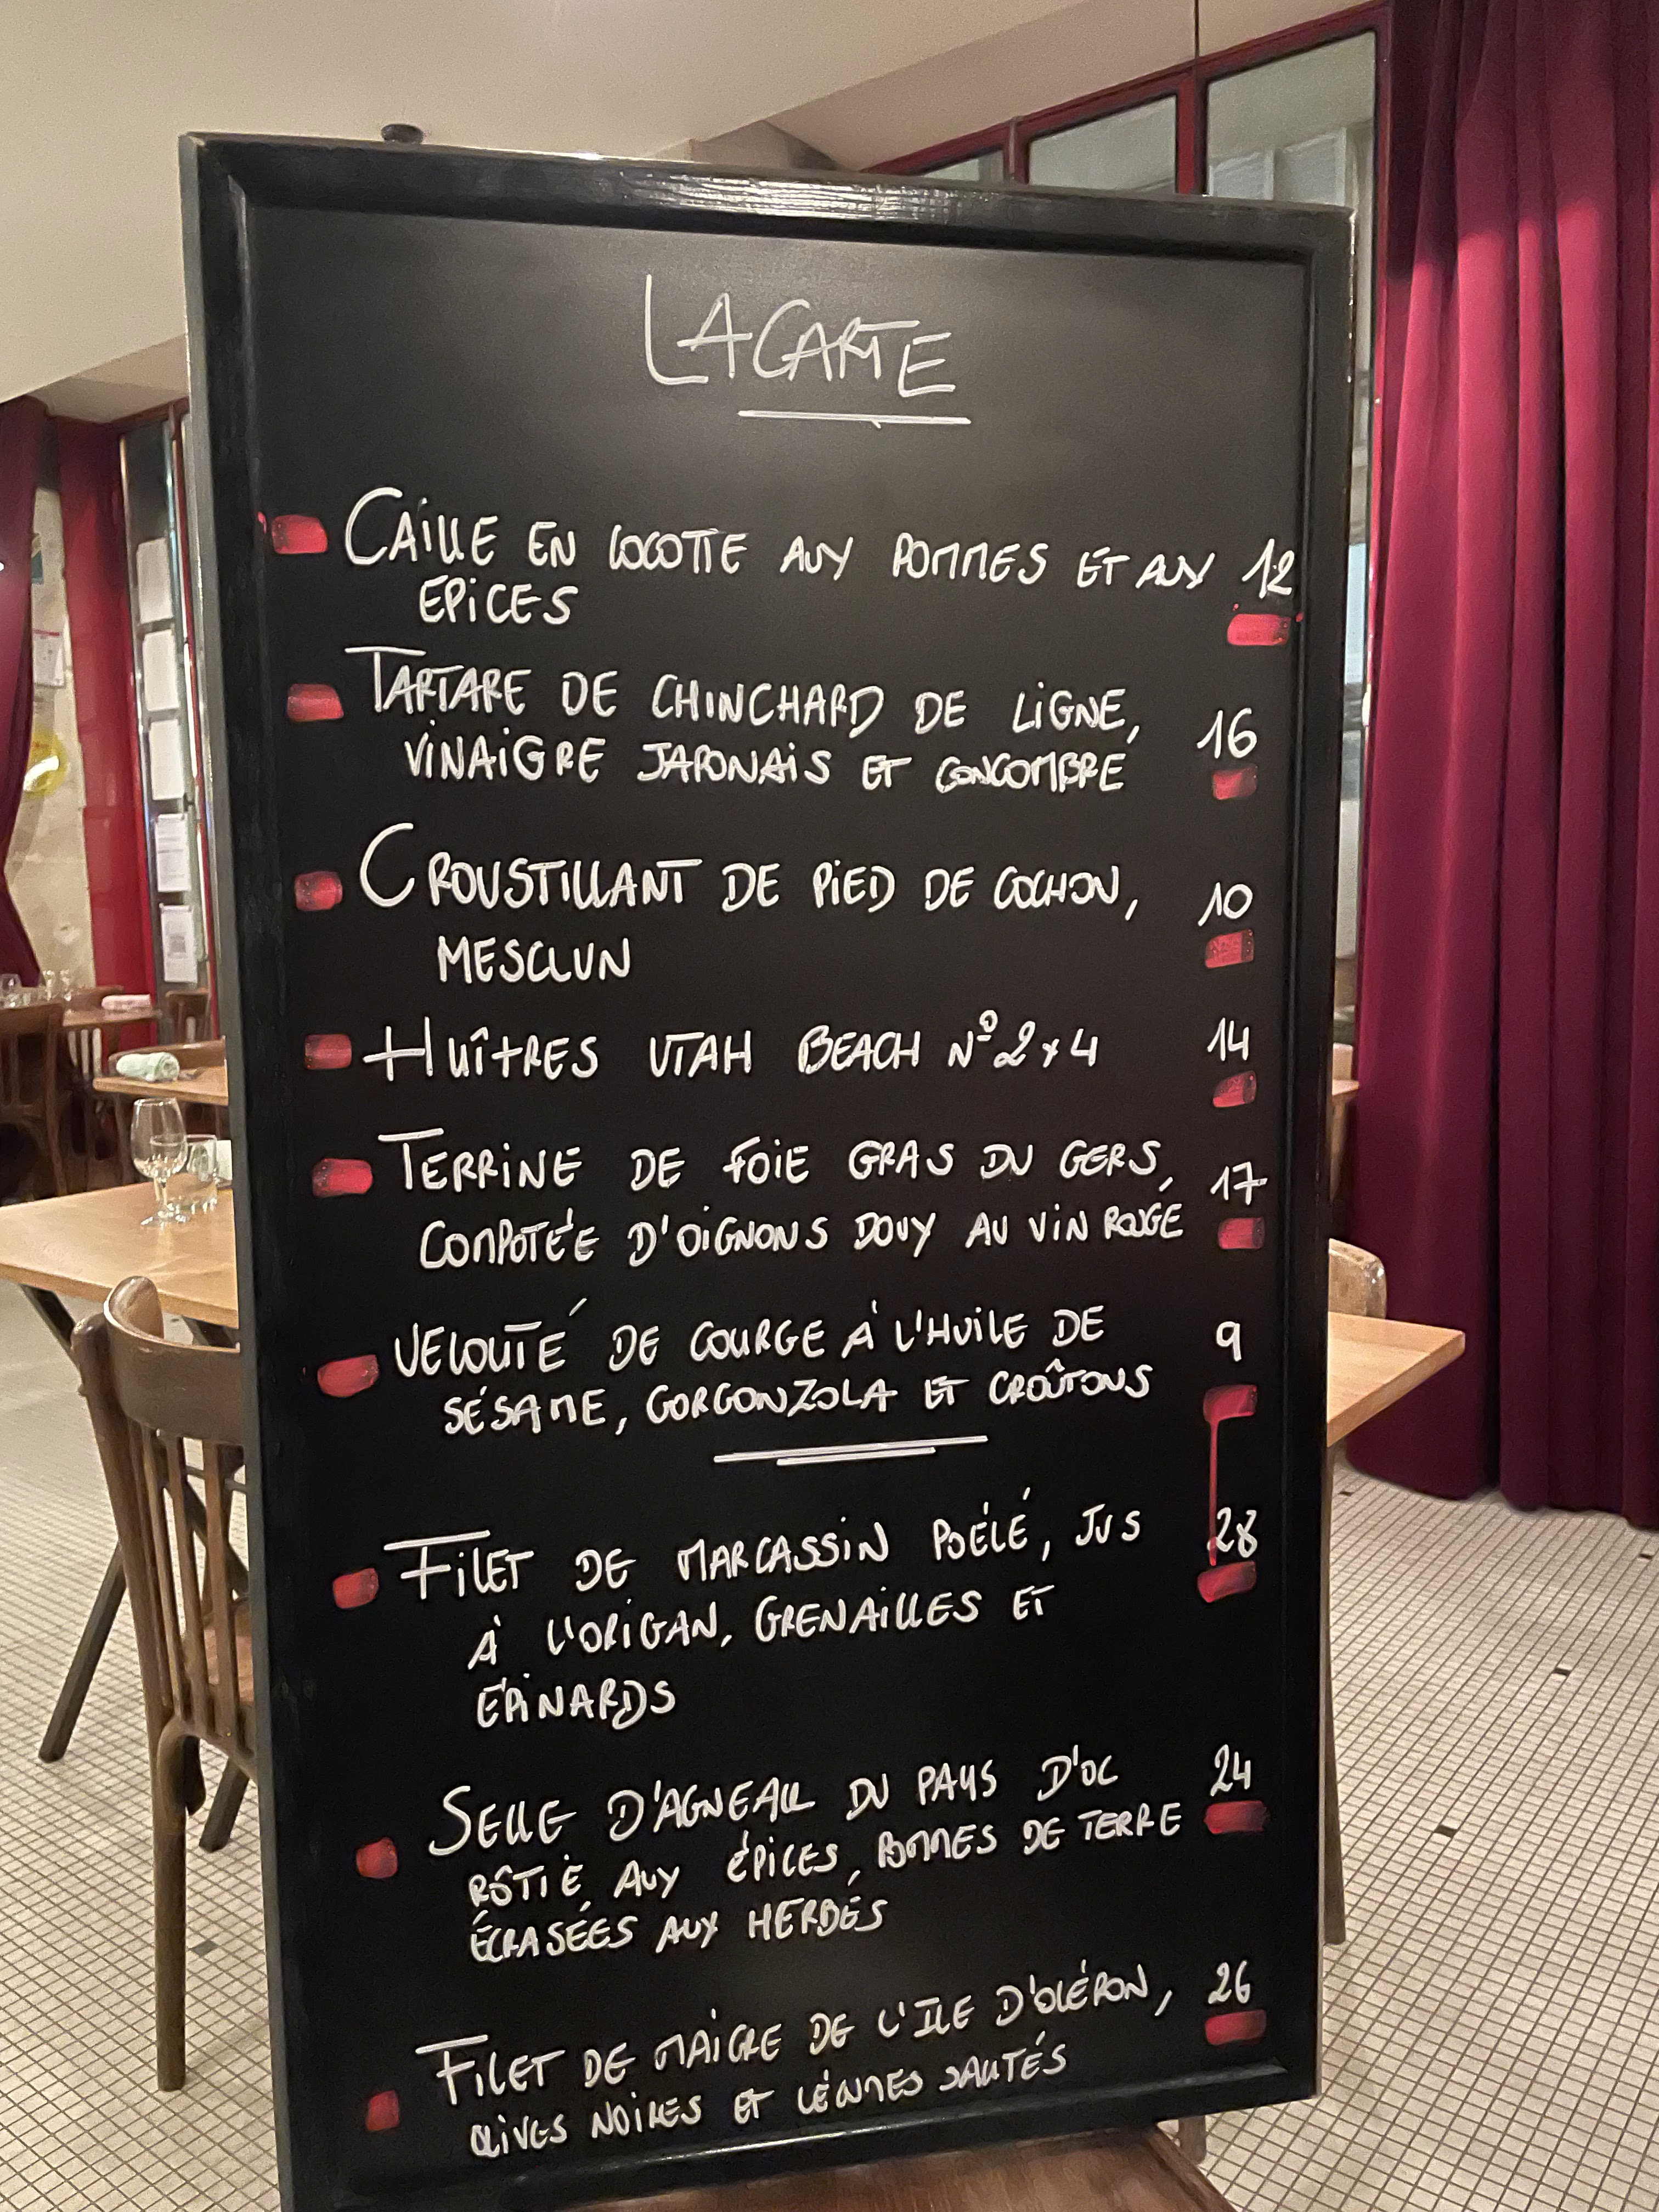 LA CARTE
CAILLE EN COCOTTE AUX POMMES ET AUX 12
EPICES
TARTARE DE CHINCHARD DE LIGNE,
VINAIGRE JAPONAIS ET CONCOMBRE 16
CROUSTILLANT DE PIED DE COCHON, 10
MESCLUN
HUÎTRES UTAH BEACH N° 2 x 4 14
TERRINE DE FOIE GRAS DU GERS, 17
COMPOTÉE D'OIGNONS DOUX AU VIN ROUGE
VELOUTÉ DE COURGE À L'HUILE DE 9
SÉSAME, GORGONZOLA ET CROÛTONS
FILET DE MARCASSIN POÉLÉ, JUS 28
À L'ORIGAN, GRENAILLES ET
ÉPINARDS
SELLE D'AGNEAU DU PAYS D'OC 24
RÔTIE AUX ÉPICES, POMMES DE TERRE
ÉCRASÉES AUX HERBES
FILET DE MAIGRE DE L'ILE D'OLÉRON, 26
OLIVES NOIRES ET LÉGUMES SAUTÉS